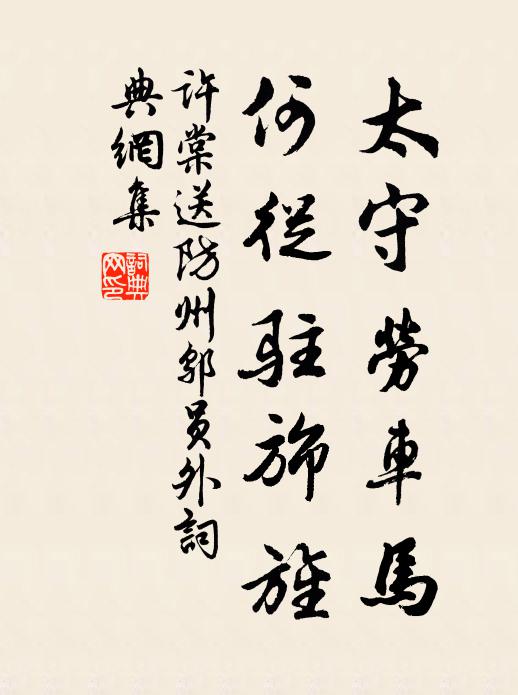 太守勞車馬
何從駐旆旌
許棠送防州鄔員外詞
典網集
詞典
网印